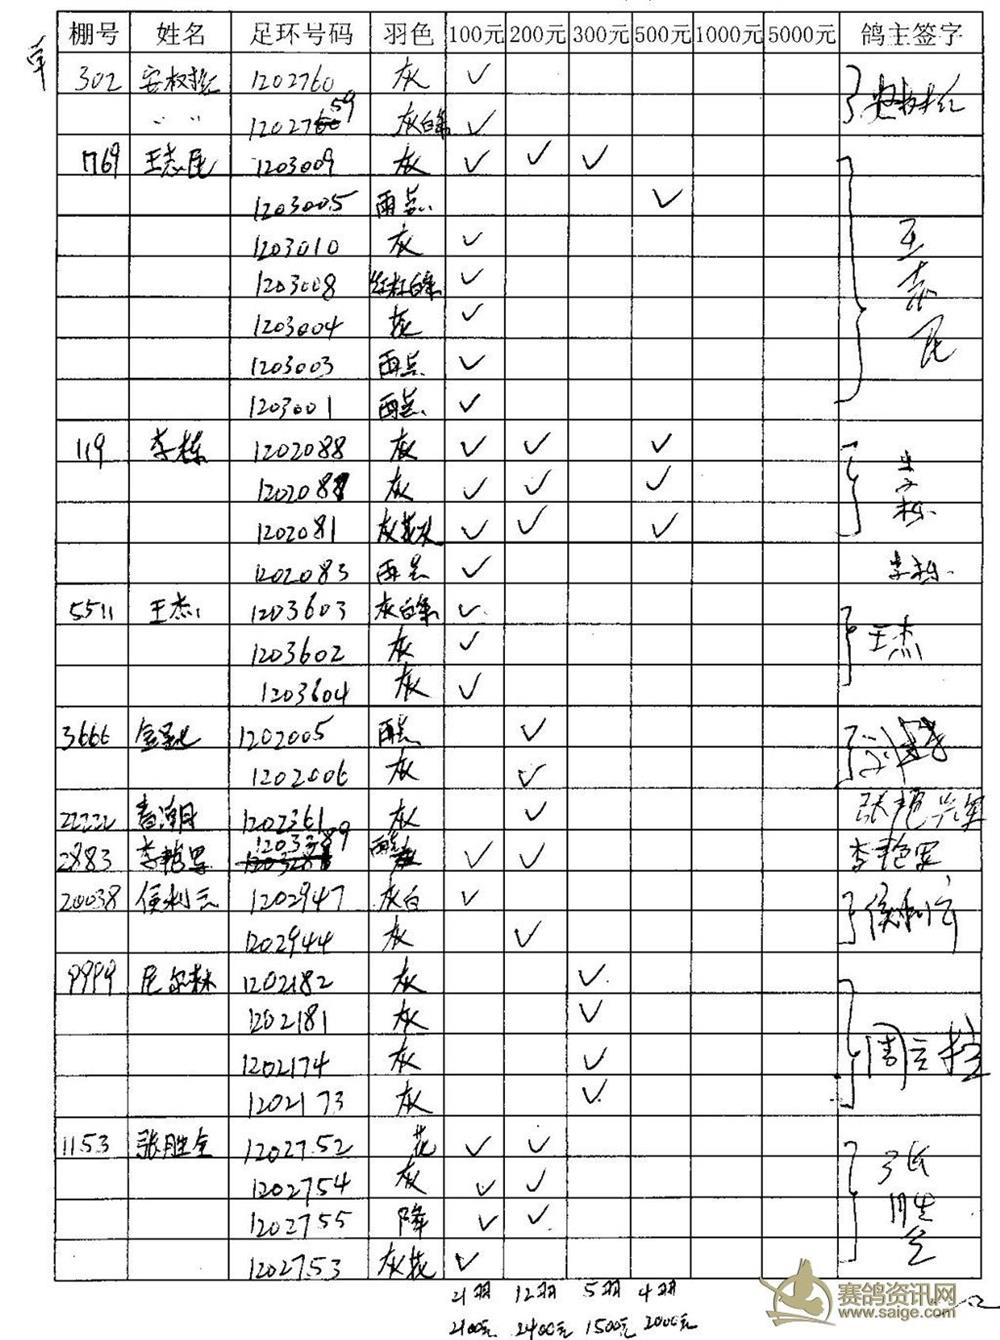 棚号 姓名 足环号码 羽色 100元 200元 300元 500元 1000元 5000元 鸽主签字
302 1202760 灰 ✓
〃 〃 120276059 灰白条 ✓
1769 王志民 1203009 灰 ✓ ✓ ✓
1203005 雨点 ✓ 王志民
1203010 灰 ✓
1203008 红轮白条 ✓
1203004 花 ✓
1203003 雨点 ✓
1203001 雨点 ✓
119 李栋 1202088 灰 ✓ ✓ ✓ 李栋
120208 灰 ✓ ✓ ✓
1202081 灰花 ✓ ✓ ✓
1202083 雨点 ✓ 李栋
5511 王杰 1203603 灰白条 ✓ 王杰
1203602 灰 ✓
1203604 灰 ✓
3666 1202005 雨点 ✓
1202006 灰 ✓
22222 1202361 灰 ✓
2883 李艳军 1203389 ✓ ✓ 李艳军
20038 侯利云 1202947 灰白 ✓ 侯利云
1202944 灰 ✓
9999 尼尔林 1202182 灰 ✓
1202181 灰 ✓
1202174 灰 ✓
1202173 灰 ✓
1153 张胜全 1202752 花 ✓ ✓ 张胜全
1202754 灰 ✓ ✓
1202755 降 ✓ ✓
1202753 灰花 ✓
21羽 12羽 5羽 4羽
2100元 2400元 1500元 2000元
赛鸽资讯网
www.saige.com